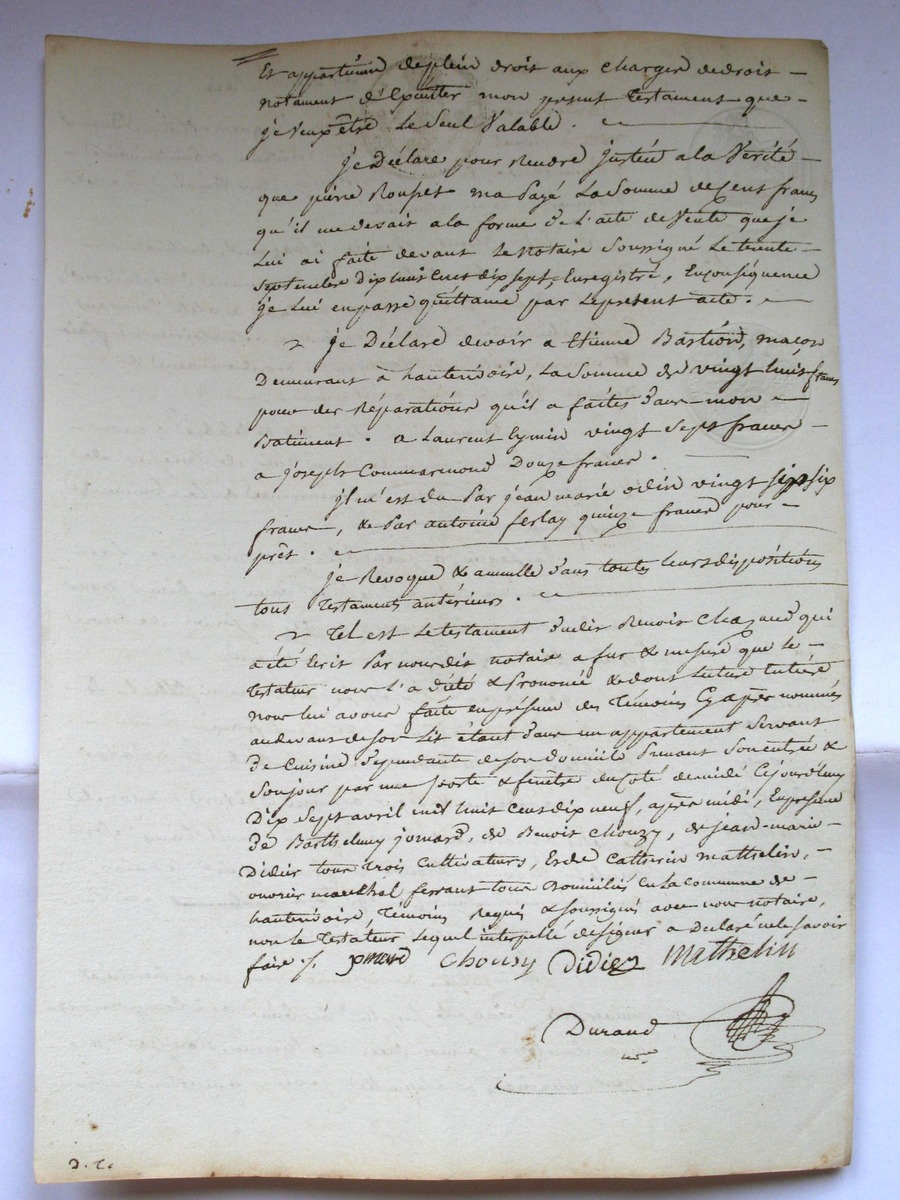 Et appartienne de plein droit aux charges de droit –
notament d'Exécutter mon present Testament que –
je veux être Le Seul Valable .
je Déclare pour rendre justice a la Verité –
que pierre Roupet ma Payé La Somme de Cent francs
qu'il me devait a la forme de L'acte de Vente que je
Lui ai faite devant Le Notaire Soussigné Le trente –
Septembre Dix huit Cent dix sept, Enregistré, En conséquence
je Lui en passe quittance par Le present acte .
je Déclare devoir a Etienne Bastion, maçon
Demeurant à hauterivoire, La Somme de vingt huit francs
pour des Réparations qu'il a faites dans mon –
Batiment . a Laurent Eymin vingt Sept francs –
a joseph Commarmond Douze francs .
jl m'est du Par jean marie odin vingt six
francs –, & Par antoine ferlay quinze francs pour –
prêt .
je Revoque & annulle dans toutes leurs dispositions
tous Testaments antérieurs .
Tel est Le testament dudit Benoit Chazaud qui
a été Ecrit Par nous dit notaire a fur & mesure que le –
Testateur nous l'a dicté & Prononcé & dont Lecture Entière
nous lui avons faite en présence des Témoins Cy après nommés
au devant de son Lit étant dans un appartement Servant
De Cuisine dépendante de son domicile Prenant Son entrée &
Son jour par une porte & fenêtre du Coté de midi Cejourd'huy
Dix Sept avril mil huit Cent dix neuf, après midi, En présence
De Barthelemy jomard, de Benoit Chouzy, de jean-marie –
Didier tous trois Cultivateurs, Et de Catherin mathelin, –
ouvrier marechal ferrant tous Domiciliés en La Commune de –
hauterivoire, Témoins Requis & soussignés avec nous notaire,
non le Testateur Lequel interpellé de signer a Declaré ne le Savoir
faire ./. jomard Chousy Didier Mathelin
Durand